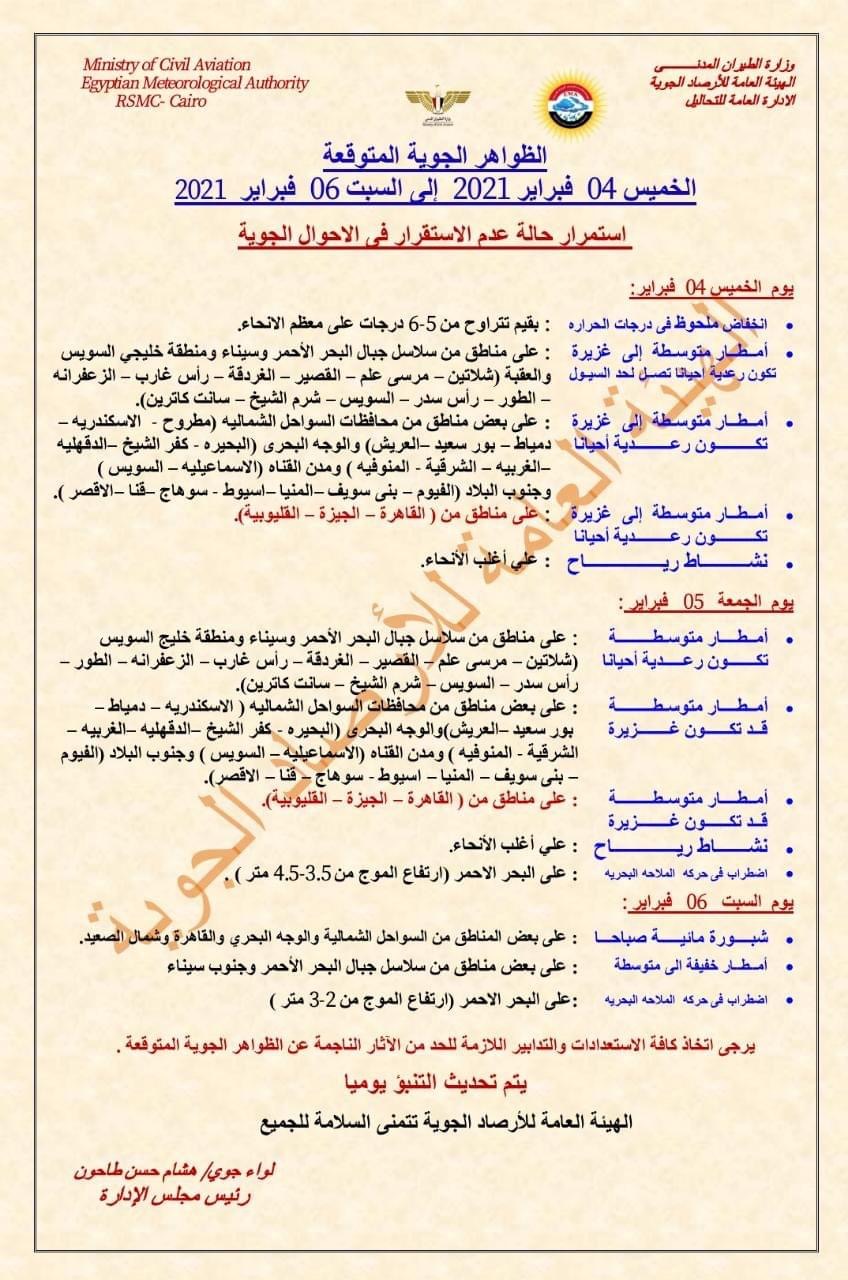 Ministry of Civil Aviation
Egyptian Meteorological Authority
RSMC- Cairo
وزارة الطيران المدنـــى
الهيئة العامة للأرصاد الجوية
الادارة العامة للتحاليل
الظواهر الجوية المتوقعة
الخميس 04 فبراير 2021 إلى السبت 06 فبراير 2021
استمرار حالة عدم الاستقرار فى الاحوال الجوية
يوم الخميس 04 فبراير:
• انخفاض ملحوظ فى درجات الحراره : بقيم تتراوح من 5-6 درجات على معظم الانحاء.
• أمـطــار متوسطة إلى غزيرة : على مناطق من سلاسل جبال البحر الأحمر وسيناء ومنطقة خليجي السويس
تكون رعدية أحيانا تصـل لحد السيول والعقبة (شلاتين – مرسى علم – القصير – الغردقة – رأس غارب – الزعفرانه
– الطور – رأس سدر – السويس – شرم الشيخ – سانت كاترين).
• أمـطــار متوسطة إلى غزيرة : على بعض مناطق من محافظات السواحل الشماليه (مطروح - الاسكندريه –
تكـــون رعـــدية أحيانا دمياط – بور سعيد –العريش) والوجه البحرى (البحيره - كفر الشيخ –الدقهليه
–الغربيه – الشرقية - المنوفيه ) ومدن القناه (الاسماعيليه – السويس )
وجنوب البلاد (الفيوم – بنى سويف –المنيا –اسيوط - سوهاج –قنا –الاقصر ).
• أمـطــار متوسطة إلى غزيرة : على مناطق من ( القاهرة – الجيزة – القليوبية).
تكـــون رعـــدية أحيانا
• نشـــاط ريـــــاح : علي أغلب الأنحاء.
يوم الجمعة 05 فبراير :
• أمـطــار متوسطـــة : على مناطق من سلاسل جبال البحر الأحمر وسيناء ومنطقة خليج السويس
تكـــون رعـــدية أحيانا (شلاتين – مرسى علم – القصير – الغردقة – رأس غارب – الزعفرانه – الطور –
رأس سدر – السويس – شرم الشيخ – سانت كاترين).
• أمـطــار متوسطـــة : على بعض مناطق من محافظات السواحل الشماليه ( الاسكندريه – دمياط –
قد تكـــون غـــزيرة بور سعيد –العريش)والوجه البحرى (البحيره - كفر الشيخ –الدقهليه –الغربيه –
الشرقية - المنوفيه ) ومدن القناه (الاسماعيليه – السويس ) وجنوب البلاد (الفيوم
– بنى سويف – المنيا – اسيوط - سوهاج – قنا – الاقصر).
• أمـطــار متوسطـــة : على مناطق من ( القاهرة – الجيزة – القليوبية).
قد تكـــون غـــزيرة
• نشـــاط ريـــــاح : علي أغلب الأنحاء.
• اضطراب فى حركه الملاحه البحريه : على البحر الاحمر (ارتفاع الموج من 3.5-4.5 متر ) .
يوم السبت 06 فبراير :
• شبـــورة مائيـــة صباحـــا : على بعض المناطق من السواحل الشمالية والوجه البحري والقاهرة وشمال الصعيد.
• أمـطــار خفيفة الى متوسطة : على بعض مناطق من سلاسل جبال البحر الأحمر وجنوب سيناء
• اضطراب فى حركه الملاحه البحريه :على البحر الاحمر (ارتفاع الموج من 2-3 متر )
يرجى اتخاذ كافة الاستعدادات والتدابير اللازمة للحد من الآثار الناجمة عن الظواهر الجوية المتوقعة .
يتم تحديث التنبؤ يوميا
الهيئة العامة للأرصاد الجوية تتمنى السلامة للجميع
لواء جوي/ هشام حسن طاحون
رئيس مجلس الإدارة
الهيئة العامة للأرصاد الجوية